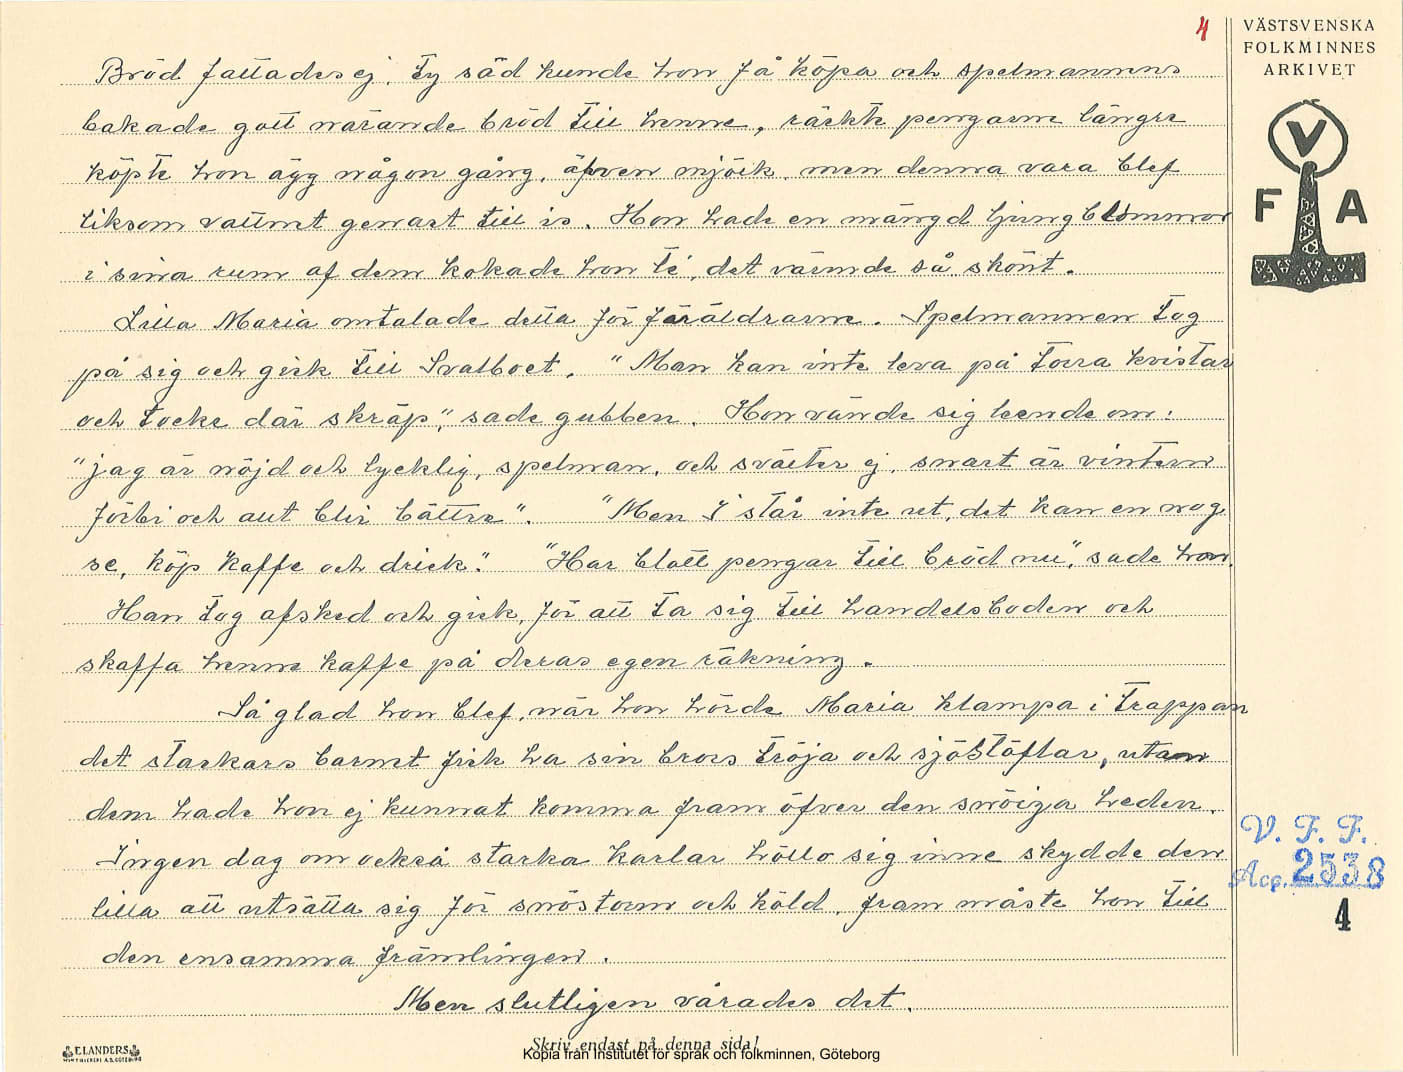 4
VÄSTSVENSKA
FOLKMINNES
ARKIVET
V
F A
Bröd fattades ej. Ty säd kunde hon få köpa och spelmannens
bakade gott närande bröd till henne, räckte pengarne längre
köpte hon ägg någon gång, äfven mjölk, men denna vara blef
liksom vattnet genast till is. Hon hade en mängd ljungblommor
i sina rum af dem kokade hon té, det värmde så skönt.
Lilla Maria omtalade detta för föräldrarne. Spelmannen tog
på sig och gick till Svalboet. "Man kan inte leva på torra kvistar
och tocke där skräp", sade gubben. Hon vände sig leende om:
"jag är nöjd och lycklig, spelman, och svälter ej, snart är vintern
förbi och allt blir bättre". "Men I står inte ut, det kan en nog
se, köp kaffe och drick." "Har blott pengar till bröd nu", sade hon.
Han tog afsked och gick, för att ta sig till handelsboden och
skaffa henne kaffe på deras egen räkning.
Så glad hon blef, när hon hörde Maria klampa i trappan
det stackars barnet fick ha sin brors tröja och sjöstöflar, utan
dem hade hon ej kunnat komma fram öfver den snöiga heden.
Ingen dag om också starka karlar höllo sig inne skydde den
lilla att utsätta sig för snöstorm och köld, fram måste hon till
den ensamma främlingen.
Men slutligen vårades det.
V. F. F.
Acc. 2538
4
ELANDERS
Skriv endast på denna sida!
Kopia från Institutet för språk och folkminnen, Göteborg